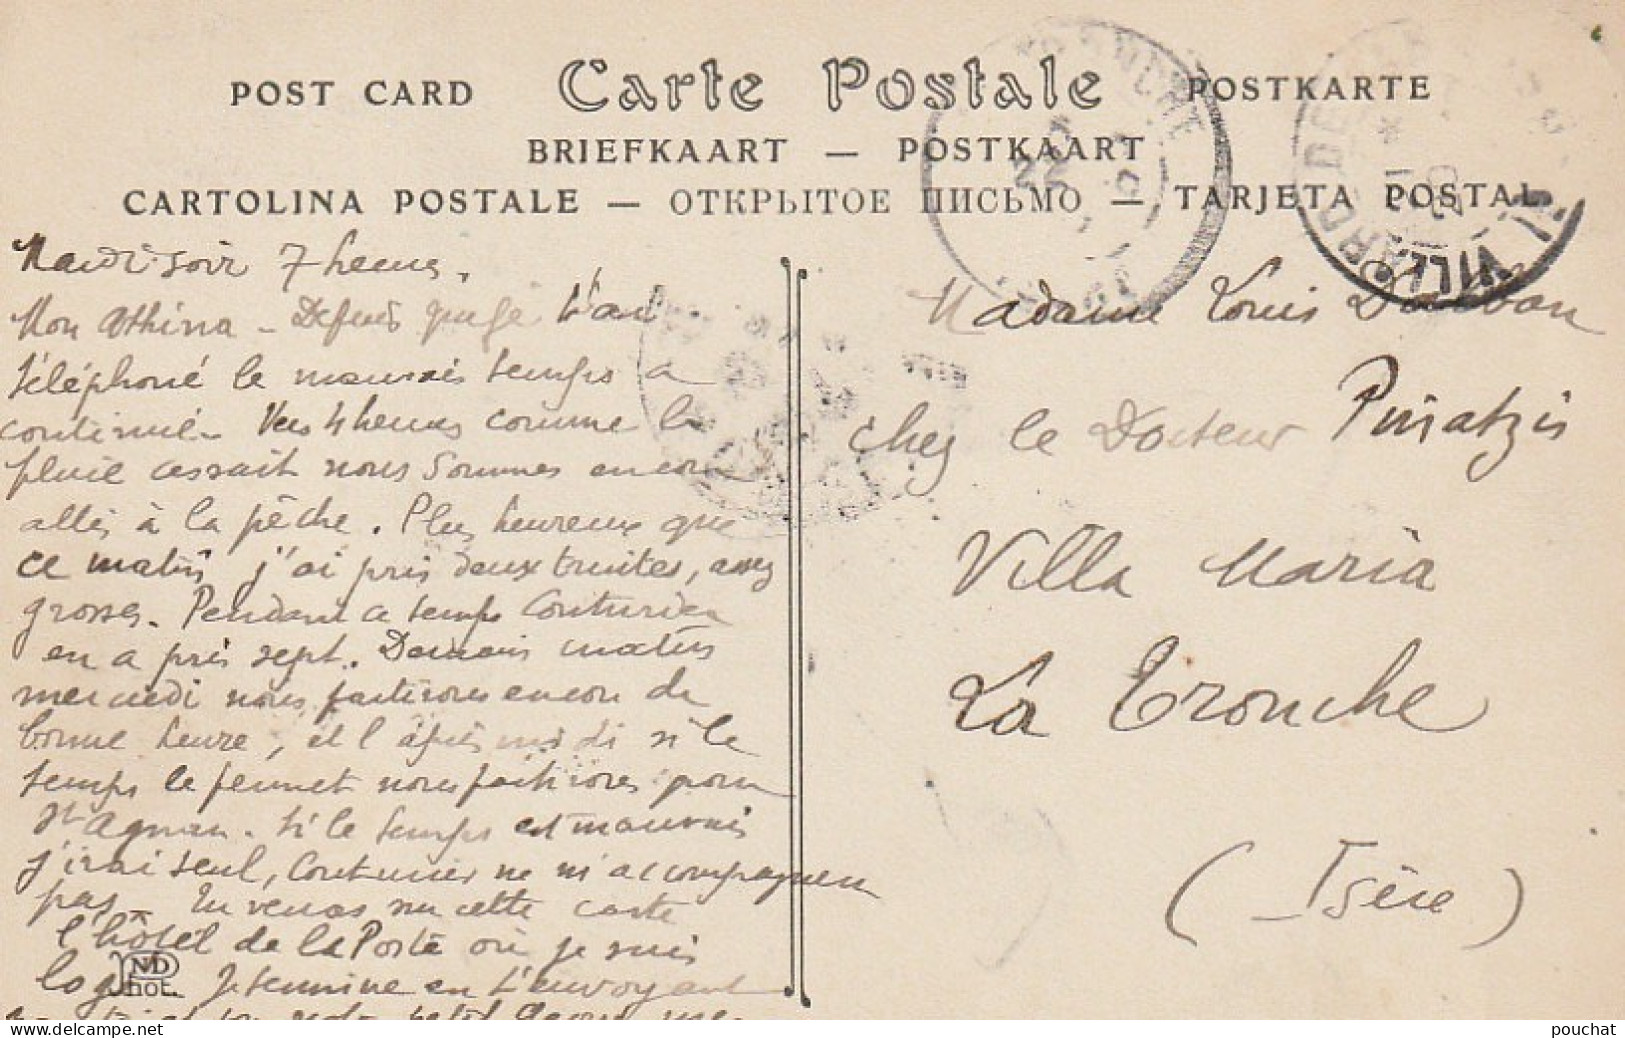 POST CARD Carte Postale POSTKARTE
BRIEFKAART — POSTKAART
CARTOLINA POSTALE — ОТКРЫТОЕ ПИСЬМО — TARJETA POSTAL
Mardi soir 7 heures.
Mon Athina — Depuis que je t'ai
téléphoné le mauvais temps a
continué. Vers 4 heures comme la
pluie cessait nous sommes encore
allés à la pêche. Plus heureux que
ce matin j'ai pris deux truites, assez
grosses. Pendant ce temps Couturier
en a pris sept. Demain matin
mercredi nous partirons encore de
bonne heure, et l'après midi si le
temps le permet nous partirons pour
St Agnan. Si le temps est mauvais
j'irai seul, Couturier ne m'accompagnera
pas. Tu verras sur cette carte
l'hôtel de la Poste où je suis
logé. Je termine en t'envoyant
petit
ND Phot.
Madame Louis
chez le Docteur
Villa Maria
La Tronche
(Isère)
VILLARD DE
delcampe.net
pouchat